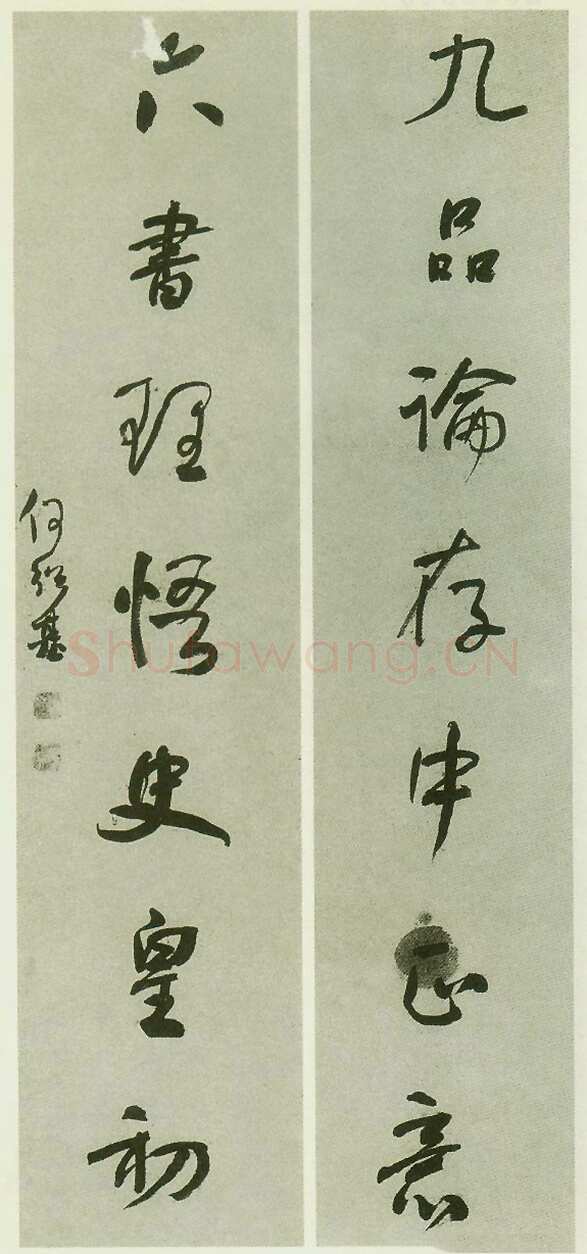 九品論存中正意
六書理悟史皇初
何紹基
Shufawang.CN